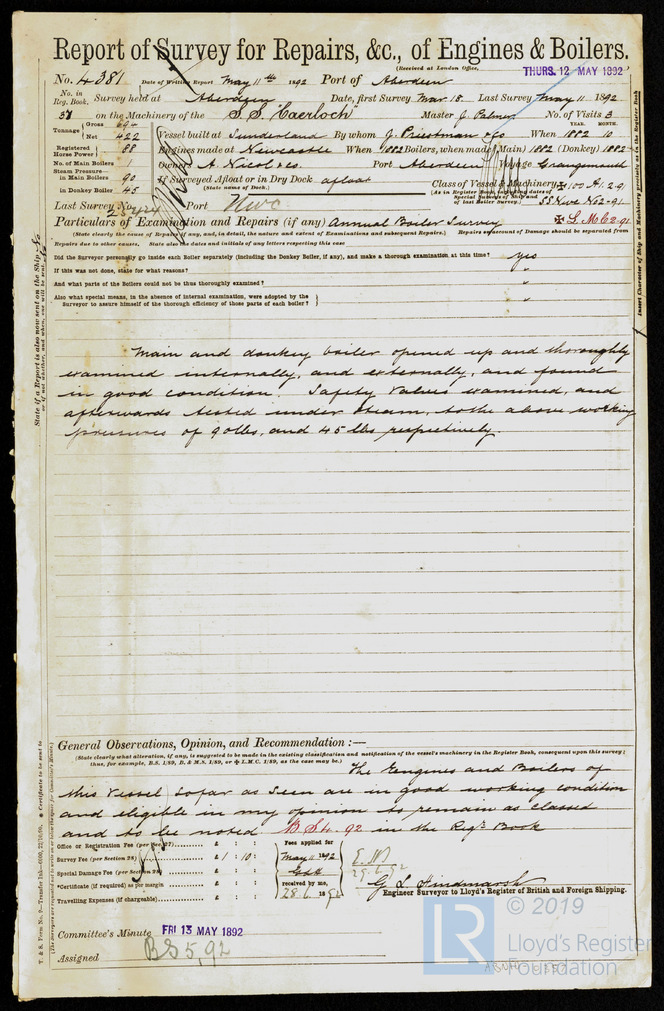 Report of Survey for Repairs, &c., of Engines & Boilers.
(Received at London Office,
THURS. 12 MAY 1892
No. 4381 Date of Writing Report May 11th 1892 Port of Aberdeen
No. in Reg. Book. Survey held at Aberdeen Date, first Survey Mar 18 Last Survey May 11 1892
37 on the Machinery of the S.S. "Caerloch" Master J. Palmer No. of Visits 3
Tonnage Gross 694 Net 422
Vessel built at Sunderland By whom J. Priestman & Co When YEAR. 1882 MONTH. 10
Registered Horse Power 88 Engines made at Newcastle When 1882 Boilers, when made (Main) 1882 (Donkey) 1882
No. of Main Boilers 1 Owners A. Nicol & Co Port Aberdeen Voyage Grangemouth
Steam Pressure in Main Boilers 90 If Surveyed Afloat or in Dry Dock afloat
(State name of Dock.)
in Donkey Boiler 45
Class of Vessel & Machinery 100 A1 2.91
(As in Register Book, including dates of Special Surveys of Ship and of last Boiler Survey.) SS Nwc No2-91
Last Survey No. 25424 Port Nwc
Particulars of Examination and Repairs (if any) Annual Boiler Survey ✠ L.M.C 2-91
(State clearly the cause of Repairs if any, and, in detail, the nature and extent of Examinations and subsequent Repairs.) Repairs on account of Damage should be separated from
Repairs due to other causes. State also the dates and initials of any letters respecting this case
Did the Surveyor personally go inside each Boiler separately (including the Donkey Boiler, if any), and make a thorough examination at this time? yes
If this was not done, state for what reasons? "
And what parts of the Boilers could not be thus thoroughly examined? "
Also what special means, in the absence of internal examination, were adopted by the
Surveyor to assure himself of the thorough efficiency of those parts of each boiler? "
Main and donkey boiler opened up and thoroughly
examined internally, and externally, and found
in good condition. Safety Valves examined, and
afterwards tested under steam, to the above working
pressures of 90lbs, and 45 lbs respectively.
General Observations, Opinion, and Recommendation :—
(State clearly what alteration, if any, is suggested to be made in the existing classification and notification of the vessel's machinery in the Register Book, consequent upon this survey;
thus, for example, B.S. 1/89, B. & M.S. 1/89, or ✠ L.M.C. 1/89, as the case may be.)
The Engines and Boilers of
this Vessel so far as seen are in good working condition
and eligible in my opinion to remain as classed
and to be noted B S 4. 92 in the Regr Book
Office or Registration Fee (per Sec. 27) £ : :
Survey Fee (per Section 28) £ 1 : 10 :
Special Damage Fee (per Section 28) £ : :
*Certificate (if required) as per margin £ : :
Travelling Expenses (if chargeable) £ : :
Fees applied for
May 11 1892
received by me,
28.6.1892
G. L. Hindmarsh
Engineer Surveyor to Lloyd's Register of British and Foreign Shipping.
Committee's Minute FRI 13 MAY 1892
Assigned BS 5,92
State if a Report is also now sent on the Ship No
Insert Character of Ship and Machinery precisely as in the Register Book
© 2019
LR
Lloyd's Register
Foundation